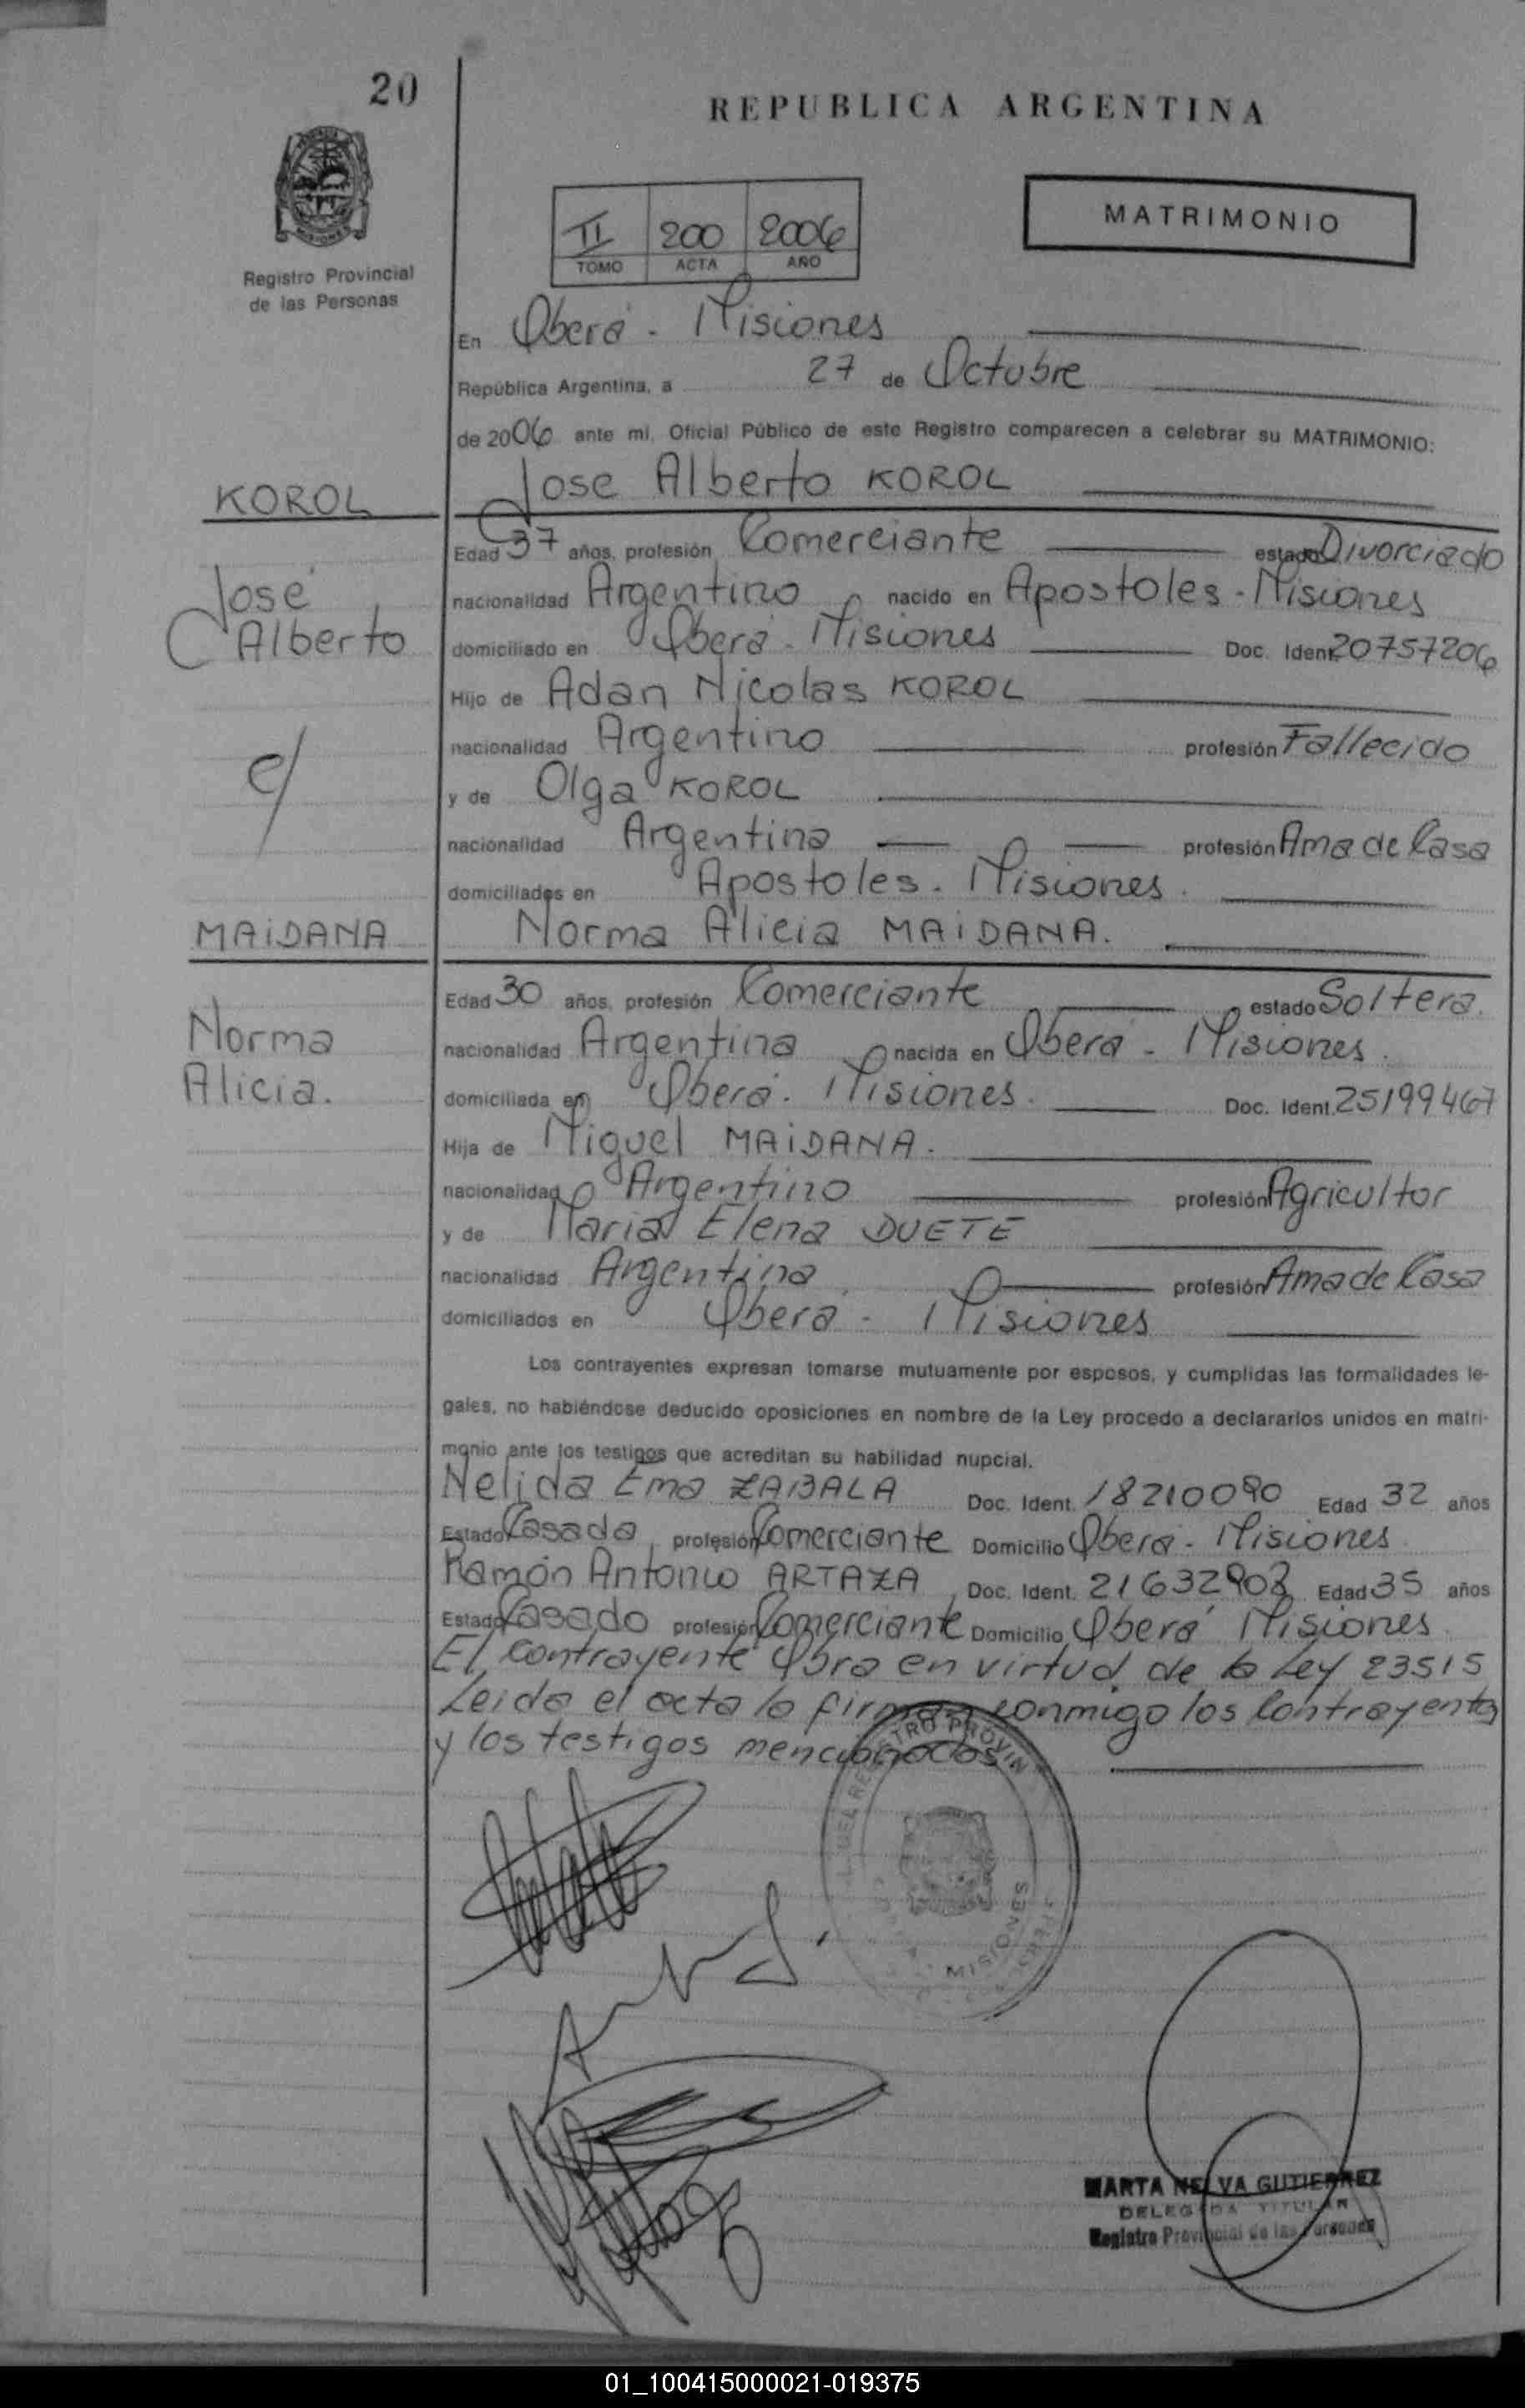 20
REPUBLICA ARGENTINA
MATRIMONIO
II 200 2006
TOMO ACTA AÑO
Registro Provincial
de las Personas
En Oberá - Misiones
República Argentina, a 27 de Octubre
de 2006 ante mi, Oficial Público de este Registro comparecen a celebrar su MATRIMONIO:
KOROL
Jose Alberto KOROL
Edad 37 años, profesión Comerciante estado Divorciado
José
nacionalidad Argentino nacido en Apostoles - Misiones
Alberto
domiciliado en Oberá - Misiones Doc. Ident. 20757206
Hijo de Adan Nicolas KOROL
nacionalidad Argentino profesión Fallecido
c/
y de Olga KOROL
nacionalidad Argentina profesión Ama de Casa
domiciliados en Apostoles - Misiones
MAiDANA
Norma Alicia MAiDANA.
Edad 30 años, profesión Comerciante estado Soltera.
Norma
nacionalidad Argentina nacida en Oberá - Misiones.
Alicia.
domiciliada en Oberá - Misiones. Doc. Ident. 25199467
Hija de Miguel MAiDANA.
nacionalidad Argentino profesión Agricultor
y de Maria Elena DUETE
nacionalidad Argentina profesión Ama de Casa
domiciliados en Oberá - Misiones
Los contrayentes expresan tomarse mutuamente por esposos, y cumplidas las formalidades le-
gales, no habiéndose deducido oposiciones en nombre de la Ley procedo a declararlos unidos en matri-
monio ante los testigos que acreditan su habilidad nupcial.
Nelida Ema ZABALA Doc. Ident. 18210090 Edad 32 años
Estado Casada profesión Comerciante Domicilio Oberá - Misiones
Ramón Antonio ARTAZA Doc. Ident. 21632903 Edad 35 años
Estado Casado profesión Comerciante Domicilio Oberá Misiones
El contrayente Obra en virtud de la Ley 23515
Leida el acta la firman conmigo los Contrayentes
y los testigos mencionados
MISIONES
MARTA NELVA GUTIERREZ
DELEGADA TITULAR
Registro Provincial de las Personas
01_100415000021-019375